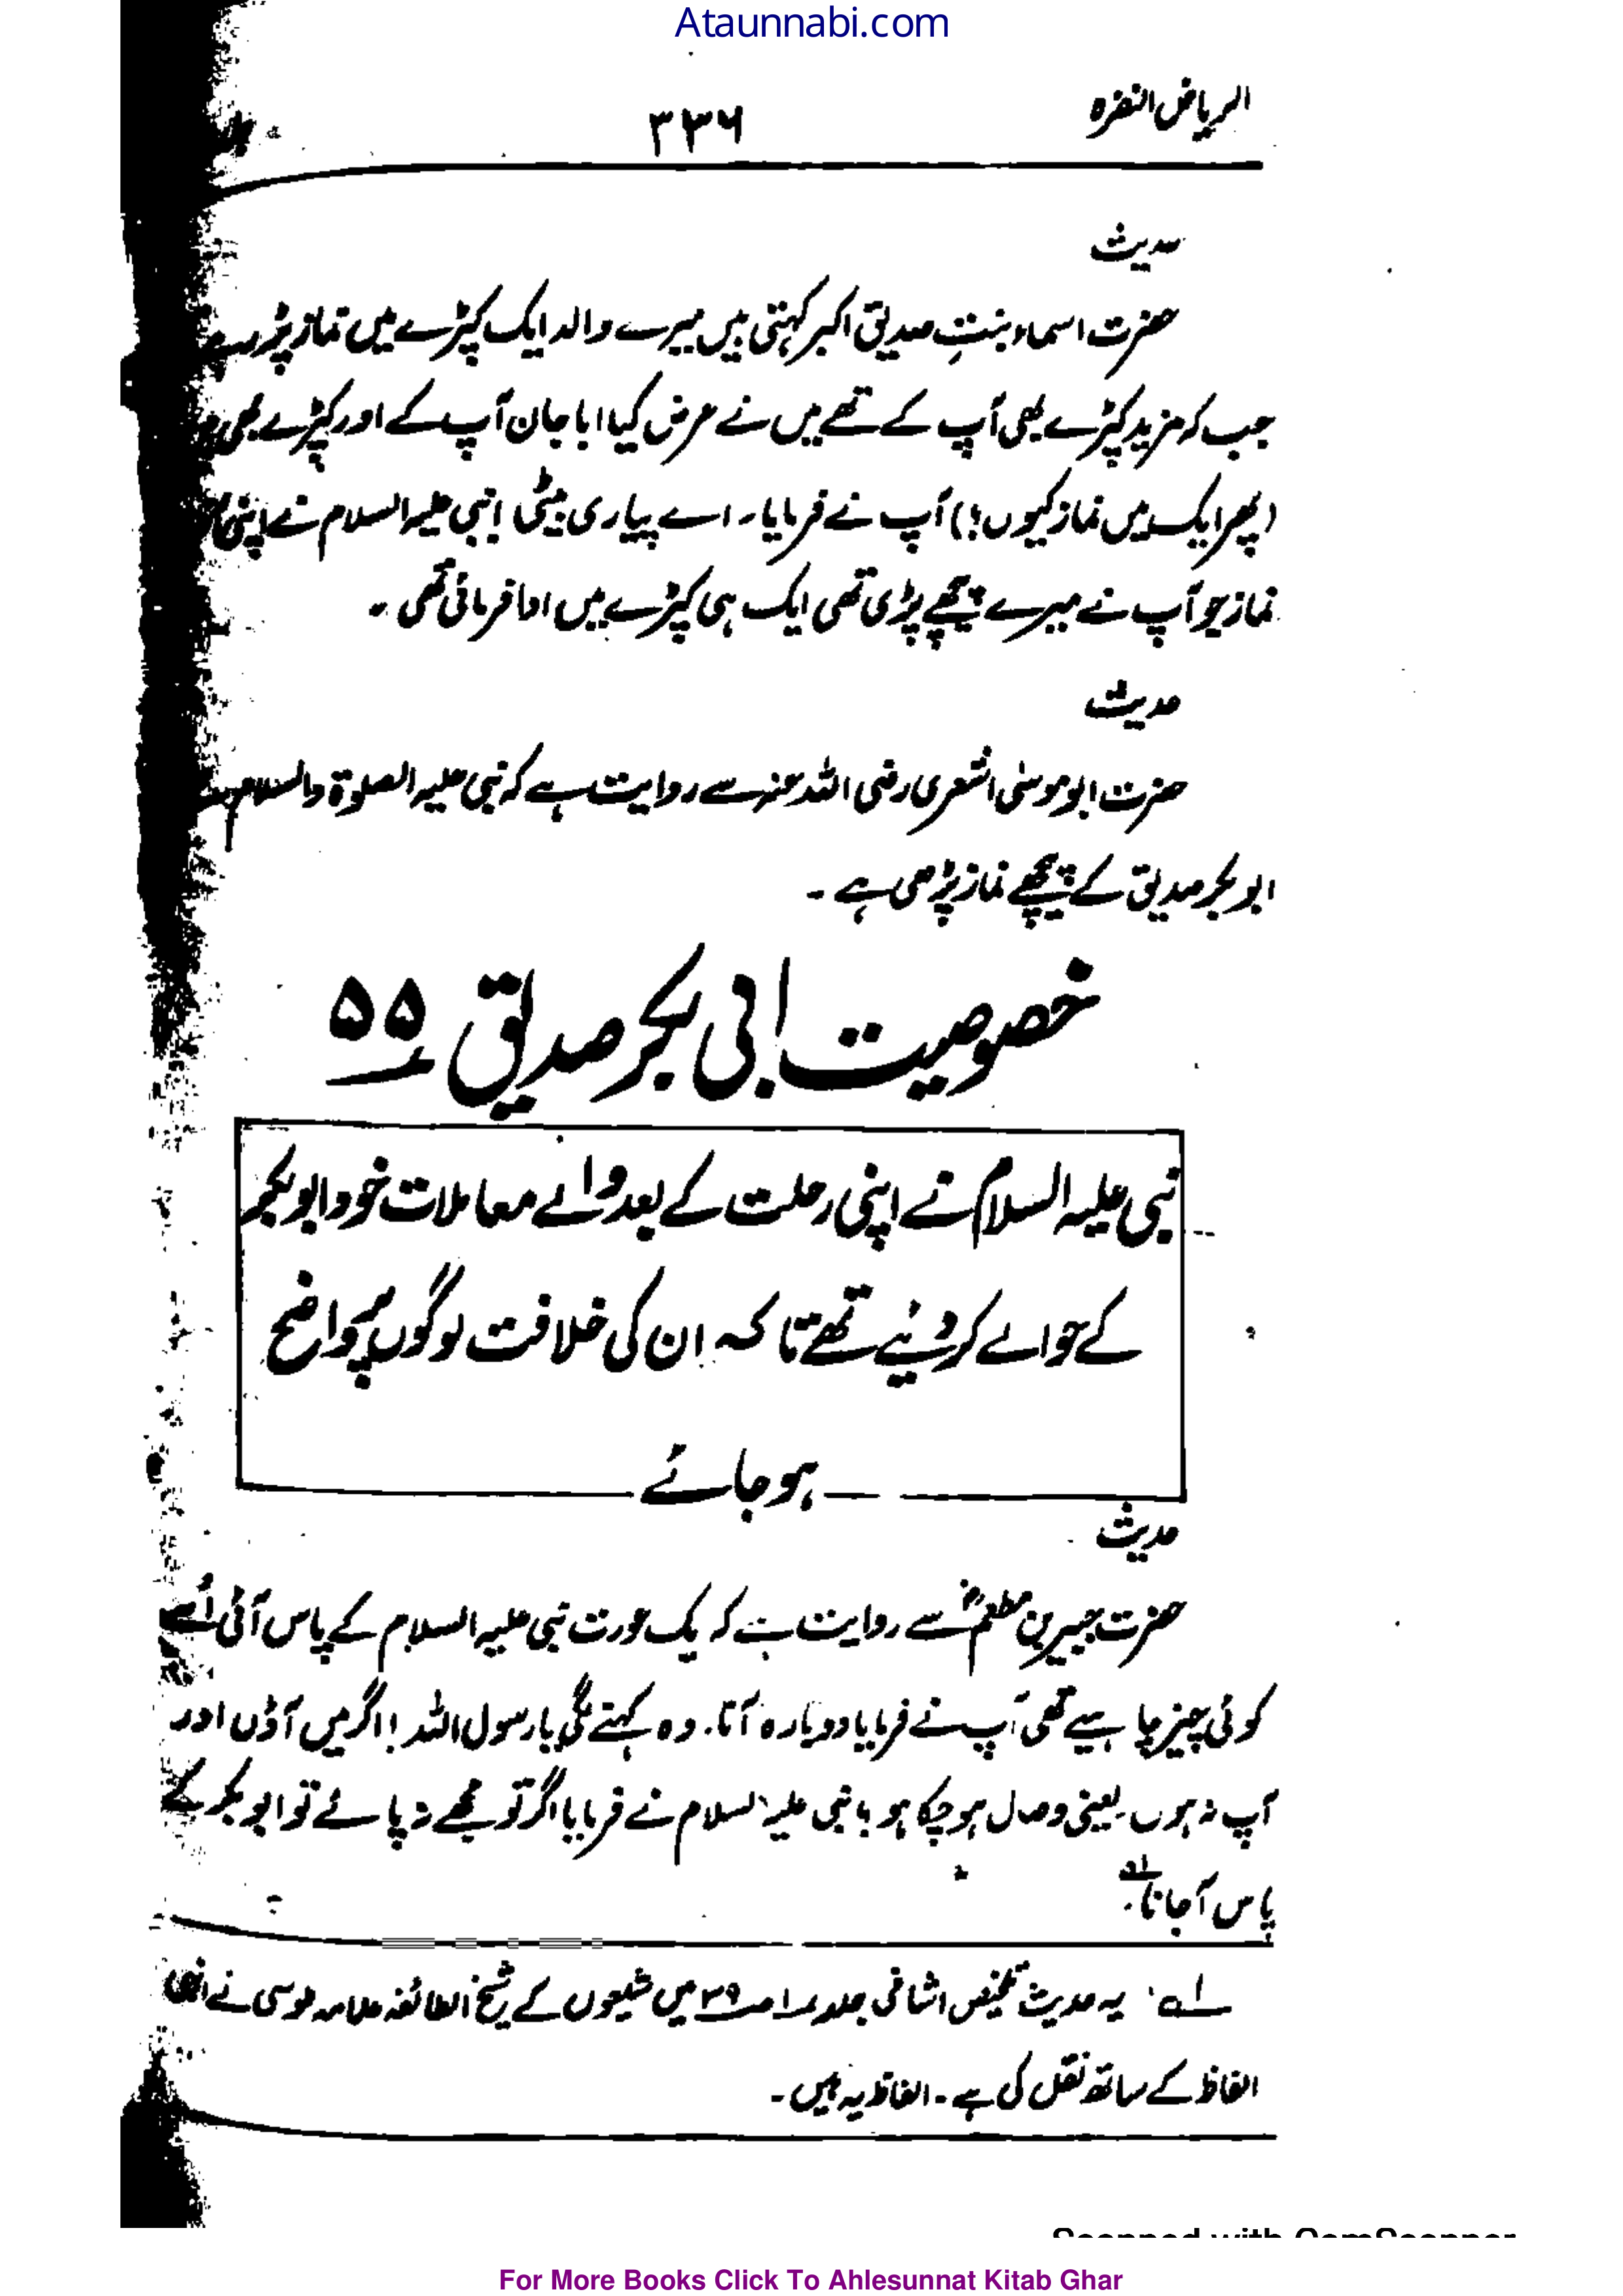 Ataunnabi.com
الریاض النضرہ
۳۳۶
حدیث
حضرت اسماء بنتِ صدیق اکبر کہتی ہیں میرے والد ایک کپڑے میں نماز پڑھ رہے
جب کہ مزید کپڑے بھی آپ کے تھے میں نے عرض کیا ابا جان آپ کے اور کپڑے بھی
(پھر ایک میں نماز کیوں؟) آپ نے فرمایا۔ اے پیاری بیٹی! نبی علیہ السلام نے اپنی
نماز جو آپ نے میرے پیچھے پڑی تھی ایک ہی کپڑے میں ادا فرمائی تھی ۔
حدیث
حضرت ابوموسٰی اشعری رضی اللہ عنہ سے روایت ہے کہ نبی علیہ الصلوٰۃ والسلام
ابو بکر صدیق کے پیچھے نماز پڑھی ہے ۔
خصوصیت ابی بکر صدیق ۵۵
نبی علیہ السلام نے اپنی رحلت کے بعد والے معاملات خود ابوبکر
کے حوالے کر دیئے تھے تا کہ ان کی خلافت لوگوں پر واضح
ہو جائے
حدیث
حضرت جبیر بن مطعمؓ سے روایت ہے کہ یک عورت نبی علیہ السلام کے پاس آئی اُسے
کوئی چیز چاہیے تھی آپ نے فرمایا دوبارہ آنا۔ وہ کہنے لگی یارسول اللہ! اگر میں آؤں اور
آپ نہ ہوں یعنی وصال ہو چکا ہو؟ نبی علیہ السلام نے فرمایا اگر تو مجھے نہ پائے تو ابو بکر کے
پاس آجانا۔ لہ
لہ یہ حدیث تلخیص الشافی جلد ۳ ص ۳۹ میں شیعوں کے شیخ الطائفہ علامہ طوسی نے انہی
الفاظ کے ساتھ نقل کی ہے ۔ الفاظ یہ ہیں ۔
Scanned with CamScanner
For More Books Click To Ahlesunnat Kitab Ghar